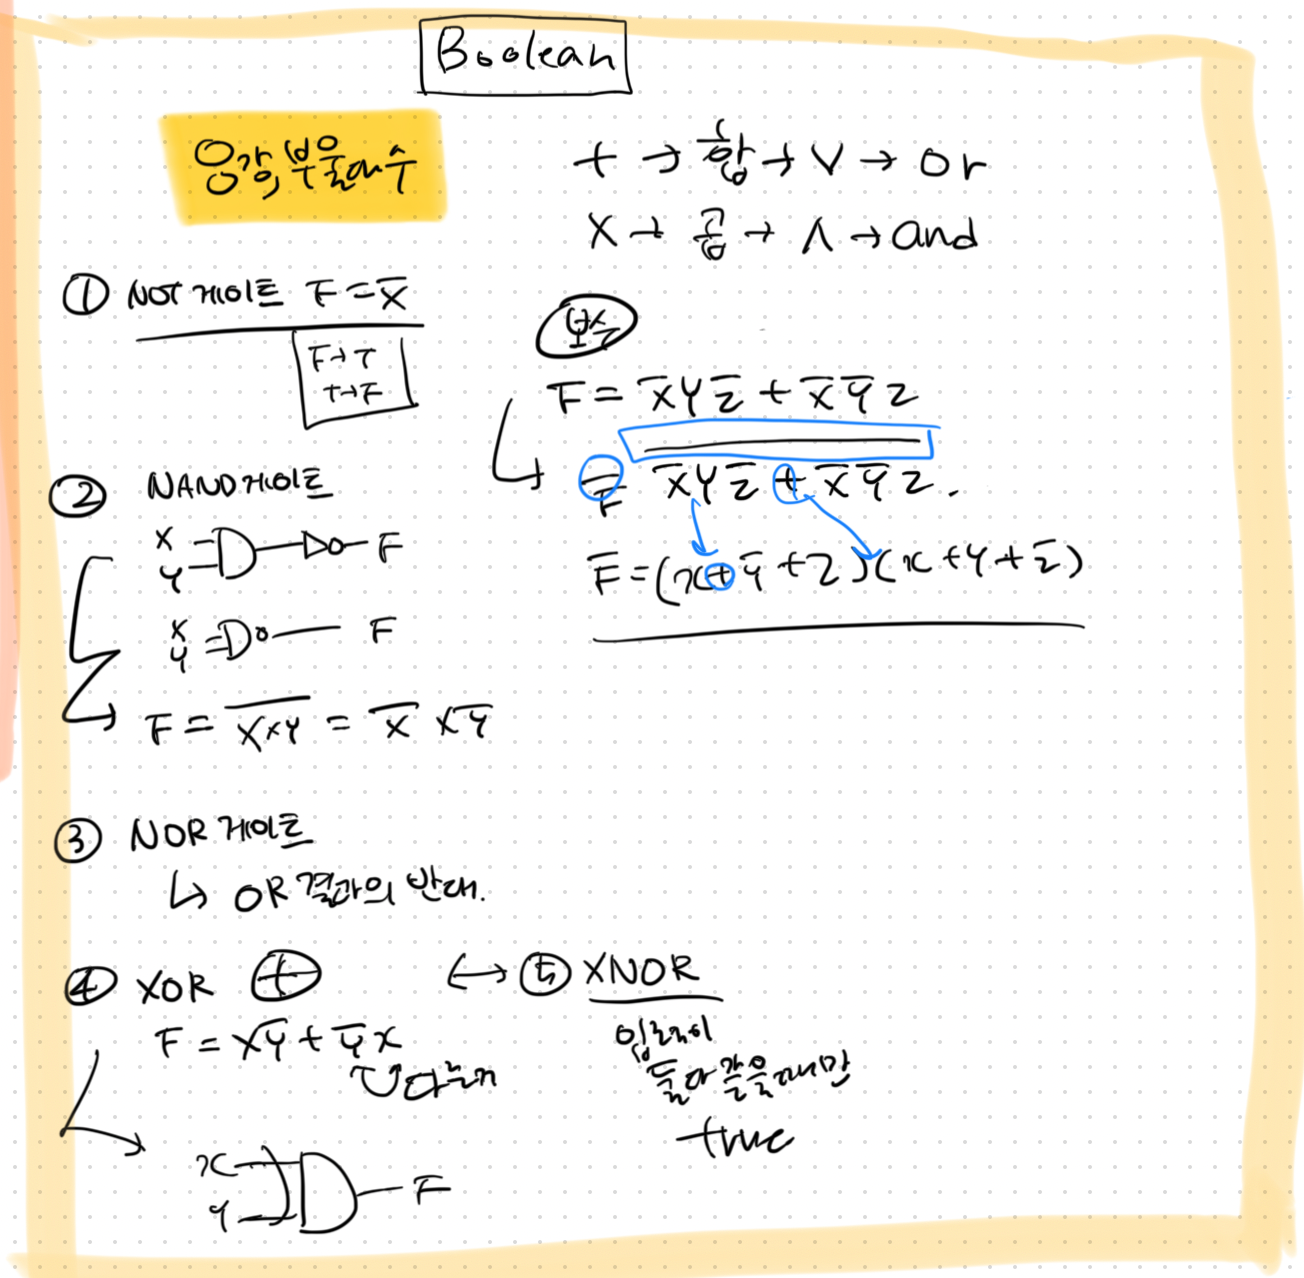 Boolean
+ → 합 → ∨ → or
X → 곱 → ∧ → and
① NOT 게이트 F = X̅
F→T
T→F
② NAND 게이트
X
Y
F
X
Y
F
F = \overline{X×Y} = X̅ × Y̅
③ NOR 게이트
↳ OR 결과의 반대.
④ XOR ⊕ ↔ ⑤ XNOR
F = XY̅ + Y̅X
입력이
둘다 같을때만
true
x
y
F
보수
F = X̅YZ̅ + X̅Y̅Z
F̅ \overline{X̅YZ̅ + X̅Y̅Z}.
F̅ = (x+y̅+z)(x+y+z̅)